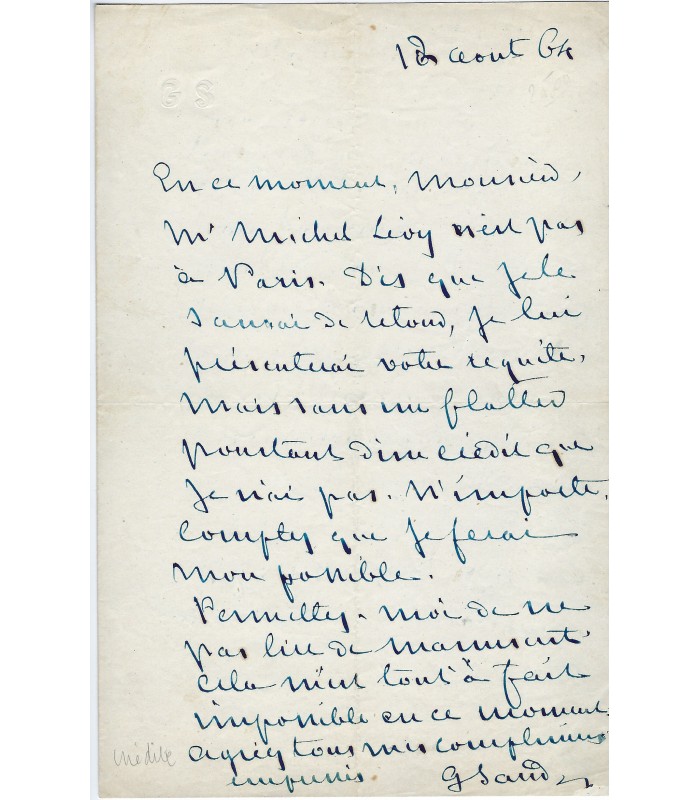 12 aout 64
G S
En ce moment, Monsieur,
Mr Michel Lévy n'est pas
à Paris. Dès que je le
saurai de retour, je lui
présenterai votre requête,
mais sans me flatter
pourtant d'un crédit que
je n'ai pas. N'importe,
comptez que je ferai
mon possible.
Permettez-moi de ne
pas lire de manuscrit.
cela m'est tout à fait
impossible en ce moment.
agréez tous mes compliments
empressés G Sand
inédite